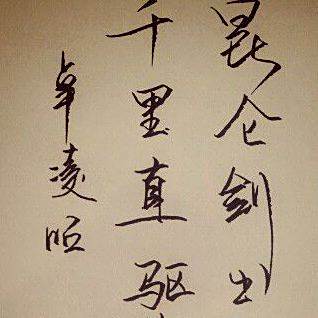 昆仑剑出
千里直驱
卓凌昭